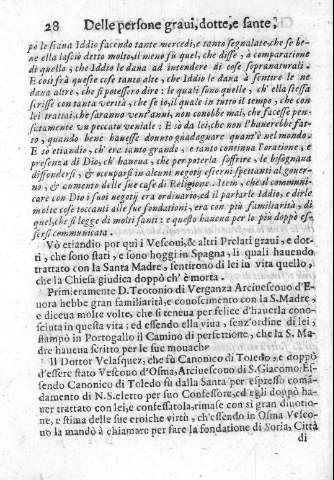 28 Delle persone graui, dotte, e sante,
po le siana Iddio facendo tante mercedi, e tanto segnalate, che se be-
ne ella lasciò detto molto, il meno fu quel, che disse, à comparatione
di quello, che Iddio le dana ad intendere di cose sopranaturali.
E così frà queste cose tanto alte, che Iddio le dana à sentire le ne
dana altre, che si potessero dire: le quali sono quelle, ch'ella stessa
scrisse con tanta verità, che se io, il quale in tutto il tempo, che con
lei trattai, che saranno vent'anni, non conobbe mai, che facesse pen-
satamente un peccato veniale: E sò da lei, che non l'hauerebbe fat-
to, quando bene hauesse douuto guadagnare quant'è nel mondo.
E sò etiandio, ch'era tanto grande, e tanto continua l'oratione, e
presenza di Dio, ch'haueua, che per poterla soffrire, le bisognaua
diffondersi, & occuparsi in alcuni negotij esterni spettanti al gouer-
no, & aumento delle sue case di Religione. Item, che il communi-
care con Dio i suoi negotij era ordinario, ed il parlarle Iddio, e dirle
molte cose toccanti alle sue fondationi, era con più familiarità, di
quel, che si legge di molti santi: e questo haueua per lo più doppò es-
sersi communicata.
Vò etiandio por quì i Vescoui, & altri Prelati graui, e dot-
ti, che sono stati, e sono hoggi in Spagna, li quali hauendo
trattato con la Santa Madre, sentirono di lei in vita quello,
che la Chiesa giudica doppò ch'è morta.
Primeramente D. Teotonio di Verganza Arciuescouo d'E-
uora hebbe gran familiarità, e conoscimento con la S. Madre,
e diceua molte volte, che si teneua per felice d'hauerla cono-
sciuta in questa vita; ed essendo ella viua, senz'ordine di lei,
stampò in Portogallo il Camino di perfettione, che la S. Ma-
dre haueua scritto per le sue monache
Il Dottor Velasquez, che fù Canonico di Toledo, e doppò
d'essere stato Vescouo d'Osma, Arciuescouo di S. Giacomo: Es-
sendo Canonico di Toledo fù dalla Santa per espresso coman-
damento di N.S. eletto per suo Confessore, ed egli doppò ha-
uer trattato con lei, e confessatola, rimase con si gran diuotio-
ne, e stima delle sue eroiche virtù, ch'essendo in Osma Vesco-
uo la mandò à chiamare per fare la fondatione di Soria, Città
di